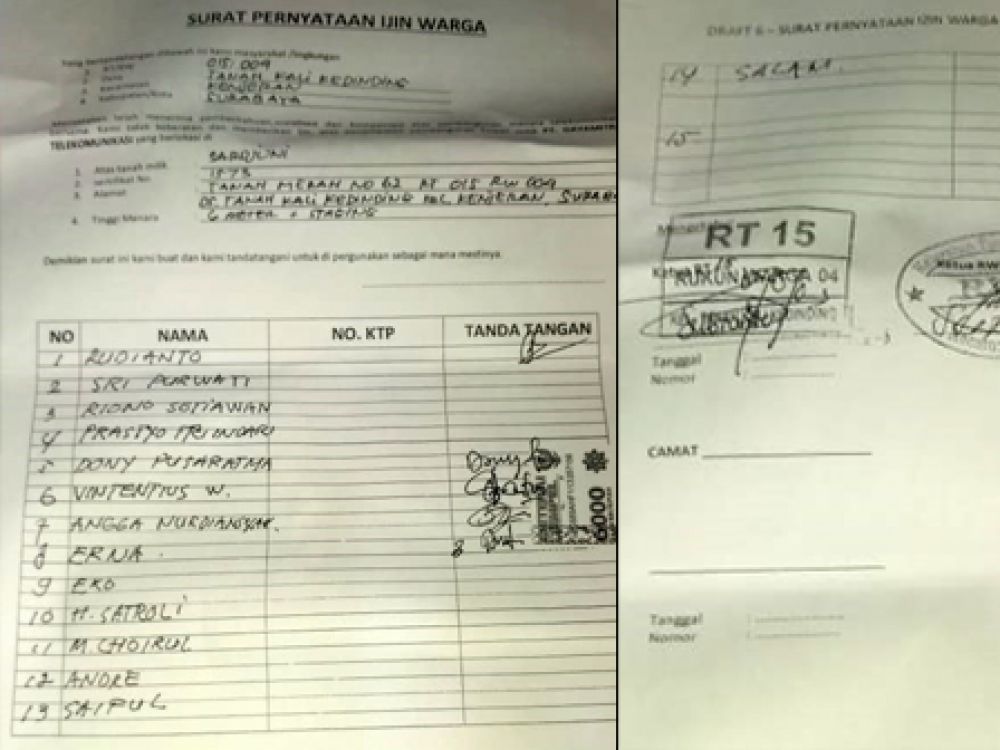 SURAT PERNYATAAN IJIN WARGA
Yang bertandatangan dibawah ini kami masyarakat /lingkungan
1. RT/RW 015/009
2. Desa TANAH KALI KEDINDING
3. Kecamatan KENJERAN
4. Kabupaten/Kota SURABAYA
TELEKOMUNIKASI yang berlokasi di
1. Atas tanah milik
2. sertifikat No. 1573
3. Alamat TANAH MERAH NO 62 RT 015 RW 009
TANAH KALI KEDINDING KEC. KENJERAN, SURAB
4. Tinggi Menara 6 METER + STAGING
Demikian surat ini kami buat dan kami tandatangani untuk di pergunakan sebagai mana mestinya.
NO NAMA NO. KTP TANDA TANGAN
1 RUDIANTO
2 SRI PURWATI
3 RIONO SETIAWAN
4 PRASTYO
5 DONY PUSARATMA
6 VINTENTIUS W.
7 ANGGA NURDIANSYAH.
8 ERNA.
9 EKO
10 H. SATROLI
11 M. CHOIRUL
12 ANDRE
13 SAIPUL
8
6000
DRAFT 6 – SURAT PERNYATAAN IJIN WARGA
14 SALAM.
15
RT 15
Ketua RW
Tanggal :
Nomor :
CAMAT
Tanggal :
Nomor :